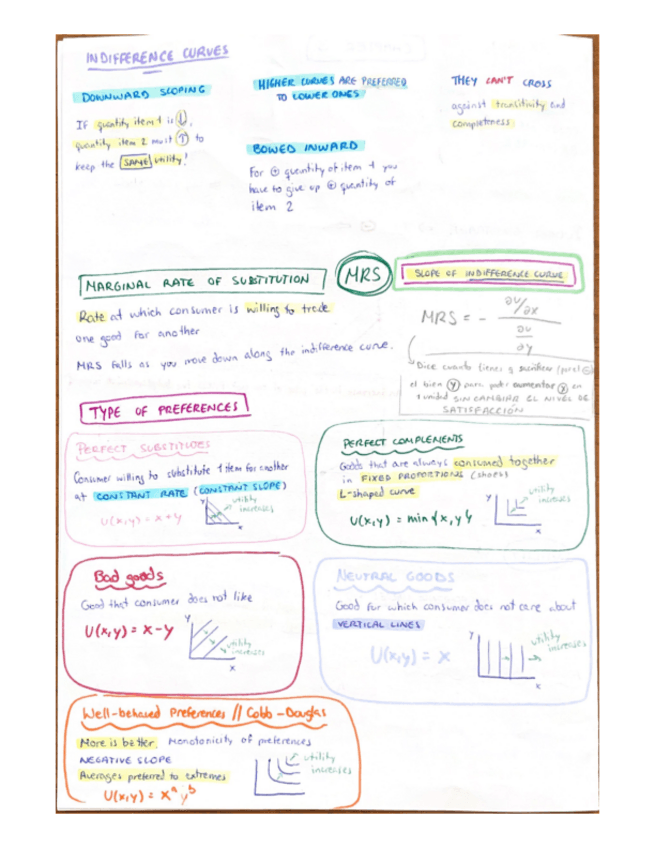 INDIFFERENCE CURVES
DOWNWARD SLOPING
IF quantity item 1 is ↓,
quantity item 2 must ↑ to
keep the SAME utility!
HIGHER CURVES ARE PREFERRED
TO LOWER ONES
BOWED INWARD
For ⊕ quantity of item 1 you
have to give up ⊕ quantity of
item 2
THEY CAN'T CROSS
against transitivity and
completeness
MARGINAL RATE OF SUBSTITUTION
MRS
SLOPE OF INDIFFERENCE CURVE
Rate at which consumer is willing to trade
one good for another
MRS falls as you move down along the indifference curve.
MRS = - ∂U/∂x
∂U
∂y
Dice cuanto tienes q sacrificar
el bien y para poder aumentar x en
1 unidad SIN CAMBIAR EL NIVEL DE
SATISFACCIÓN
TYPE OF PREFERENCES
PERFECT SUBSTITUTES
Consumer willing to substitute 1 item for another
at CONSTANT RATE (CONSTANT SLOPE)
U(x,y) = x+y
y
utility
increases
x
PERFECT COMPLEMENTS
Goods that are always consumed together
in FIXED PROPORTIONS (shoes)
L-shaped curve
U(x,y) = min{x,y}
y
utility
increases
x
Bad goods
Good that consumer does not like
U(x,y) = x-y
y
utility
increases
x
NEUTRAL GOODS
Good for which consumer does not care about
VERTICAL LINES
U(x,y) = x
y
utility
increases
x
Well-behaved Preferences // Cobb-Douglas
More is better. Monotonicity of preferences
NEGATIVE SLOPE
Averages preferred to extremes
U(x,y) = xᵃ yᵇ
utility
increases